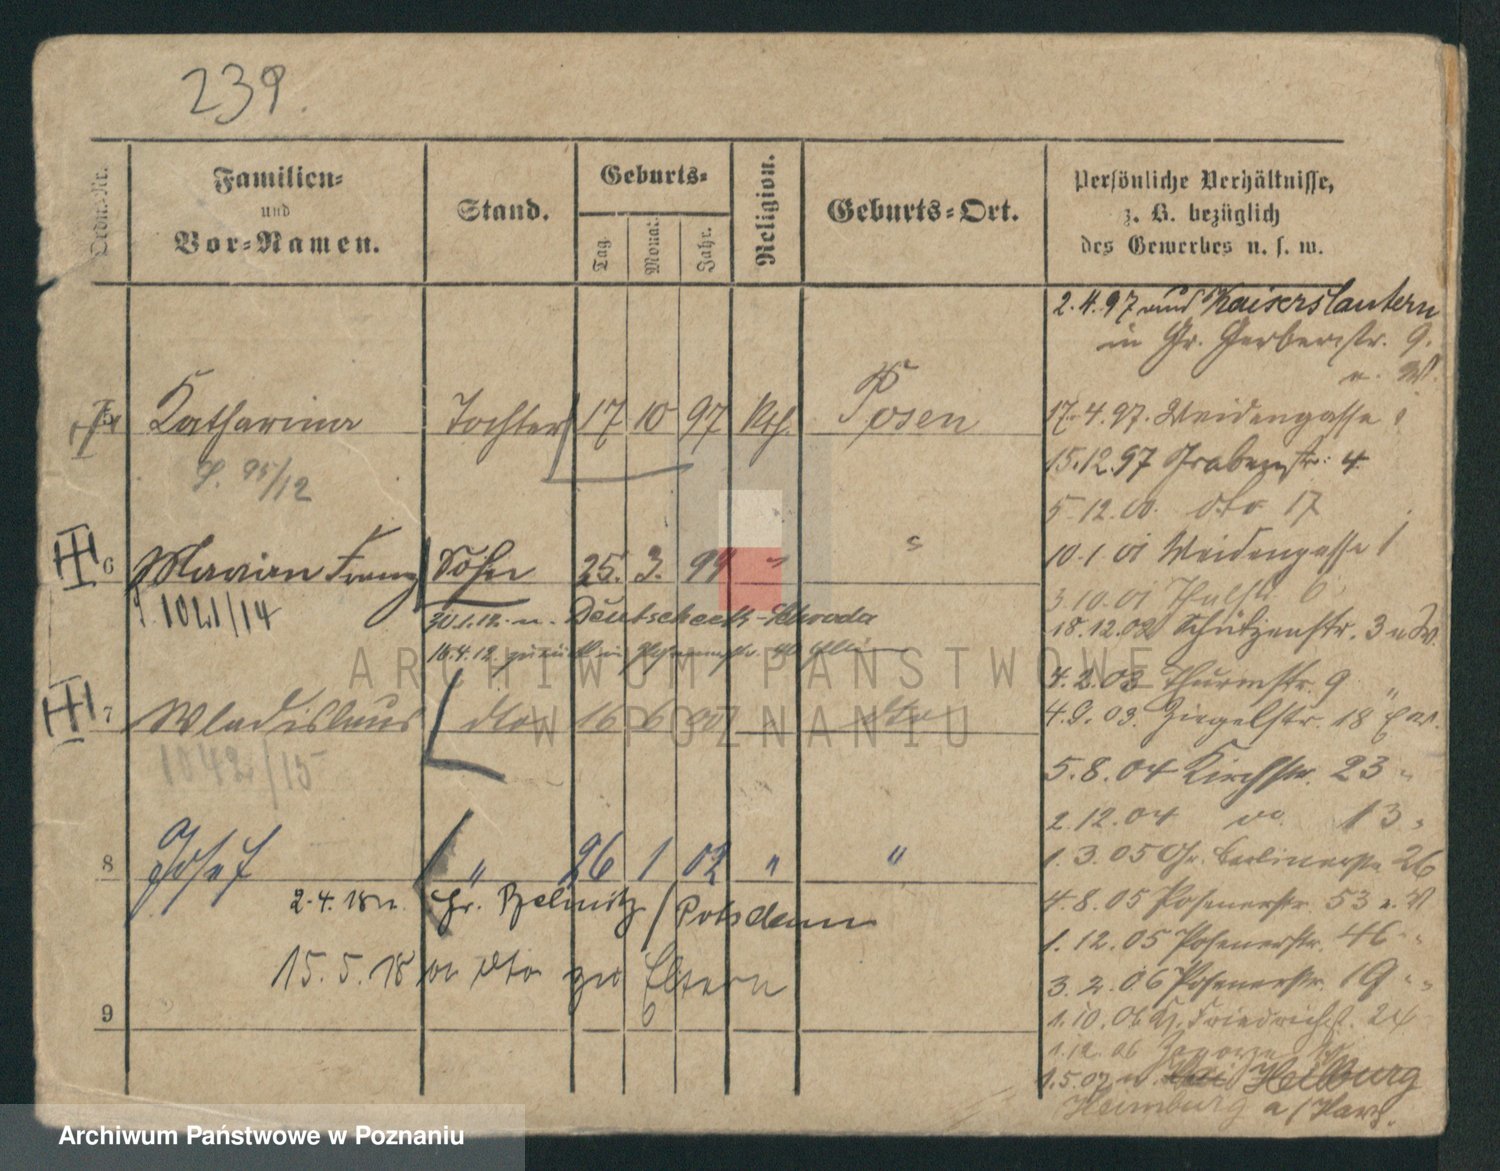 239.
Ordn.-Nr.
Familien-
und
Vor-Namen.
Stand.
Geburts-
Tag.
Monat.
Jahr.
Religion.
Geburts-Ort.
Persönliche Verhältnisse,
z. B. bezüglich
des Gewerbes u. s. w.
2.4.97 Kaiserslautern
in Gr. Gerberstr. 9.
5 Katharina Tochter 17 10 97 Kth. Posen
17.4.97. Weidengasse
15.12.97 Grabenstr. 4
95/12
5.12.00. dto 17
6 Marian Franz Sohn 25. 3. 99 "
10.1.01 Weidengasse 1
1021/14
30.1.12. n. Deutscheck-Schroda
16.4.12. zurück in
3.10.01 Thalstr. 6
18.12.02 Schützenstr. 3
4.2.03 Thurmstr. 9 "
7 Wladislaus dto 16 6 00 " dto
4.9.03. Ziegelstr. 18
1042/15
5.8.04 Kirchstr. 23 "
2.12.04 13 "
8 Josef " 26 1 02 " "
1.3.05 Gr. Berlinerstr. 26
2.4.18 n. Gr. Potsdam
4.8.05 Posenerstr. 53
1.12.05 Posenerstr. 46 "
15.5.18 dto zu Eltern
3.2.06 Posenerstr. 19 "
9
1.10.06 Friedrichst. 24
1.12.06
1.5.07 n. Heilburg
Heimburg a/Harz.
ARCHIWUM PAŃSTWOWE
W POZNANIU
Archiwum Państwowe w Poznaniu